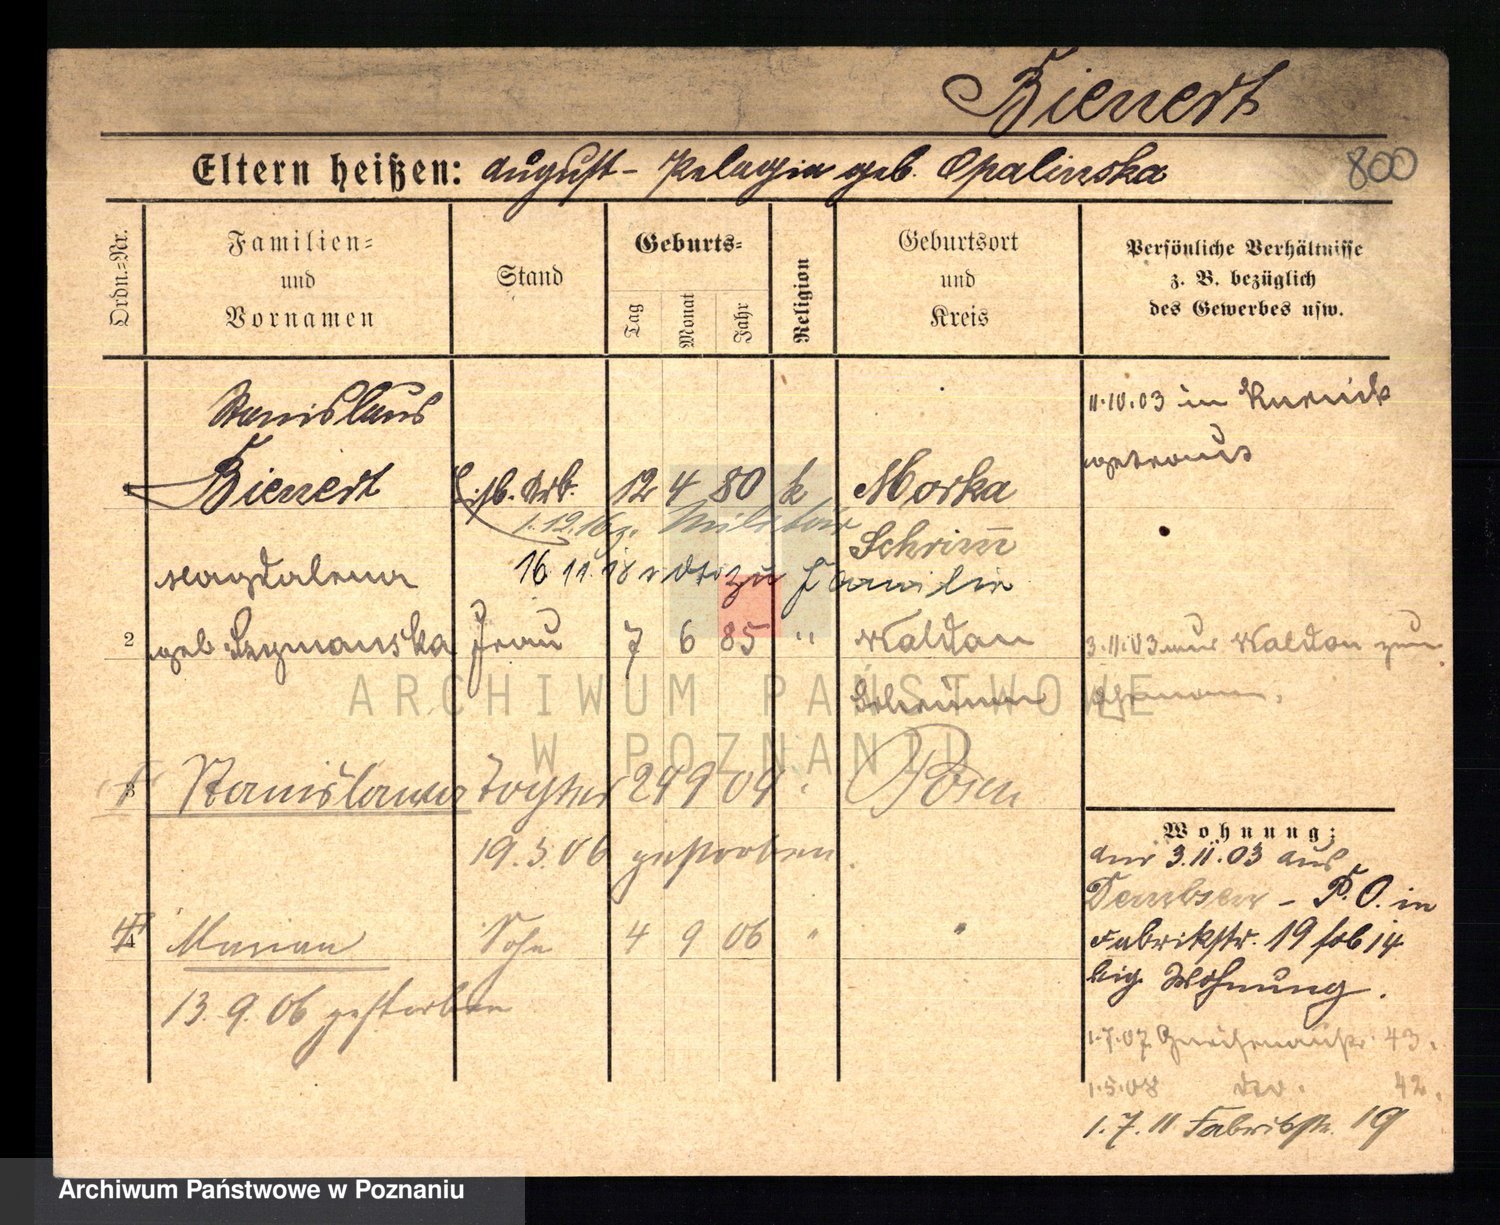 Bienert
Eltern heißen: August - Pelagia geb. Opalinska
800
Ordn.=Nr.
Familien=
und
Vornamen
Stand
Geburts=
Tag
Monat
Jahr
Religion
Geburtsort
und
Kreis
Persönliche Verhältnisse
z. B. bezüglich
des Gewerbes usw.
Stanislaus
Bienert
12 4 80 k
Morka
Schrim̅
11.10.03 in Kurnik
getraut
1.12.16 z. Militär
16 11 18 zu Familie
Magdalena
2 geb Szymanska Frau 7 6 85 "
Waldau
3.11.03 aus Waldau zum
Ehemann.
3 Stanislawa Tochter 24 9 04 "
Posen
19.5.06 gestorben.
4 Marian Sohn 4 9 06 " "
13.9.06 gestorben
Wohnung:
am 3.11.03 aus
Dembsen - P.O. in
Fabrikstr. 19 seb 14
Wohnung.
1.7.07 Gneisenaustr. 43.
1.5.08 do. 42.
1.7.11 Fabrikstr. 19
ARCHIWUM PAŃSTWOWE
W POZNANIU
Archiwum Państwowe w Poznaniu